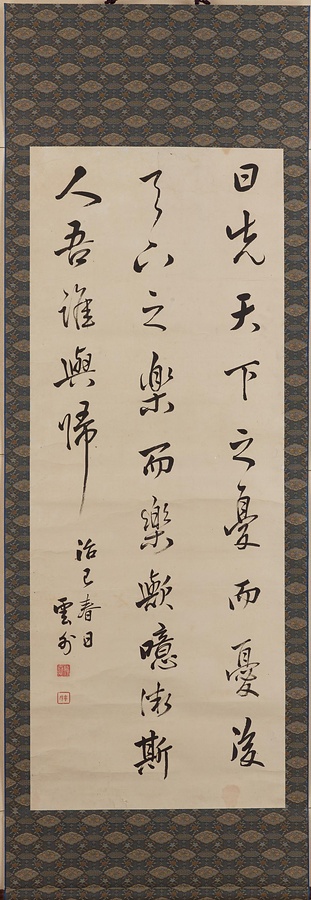 曰先天下之憂而憂後
天下之楽而樂歟噫微斯
人吾誰與帰
春日
雲